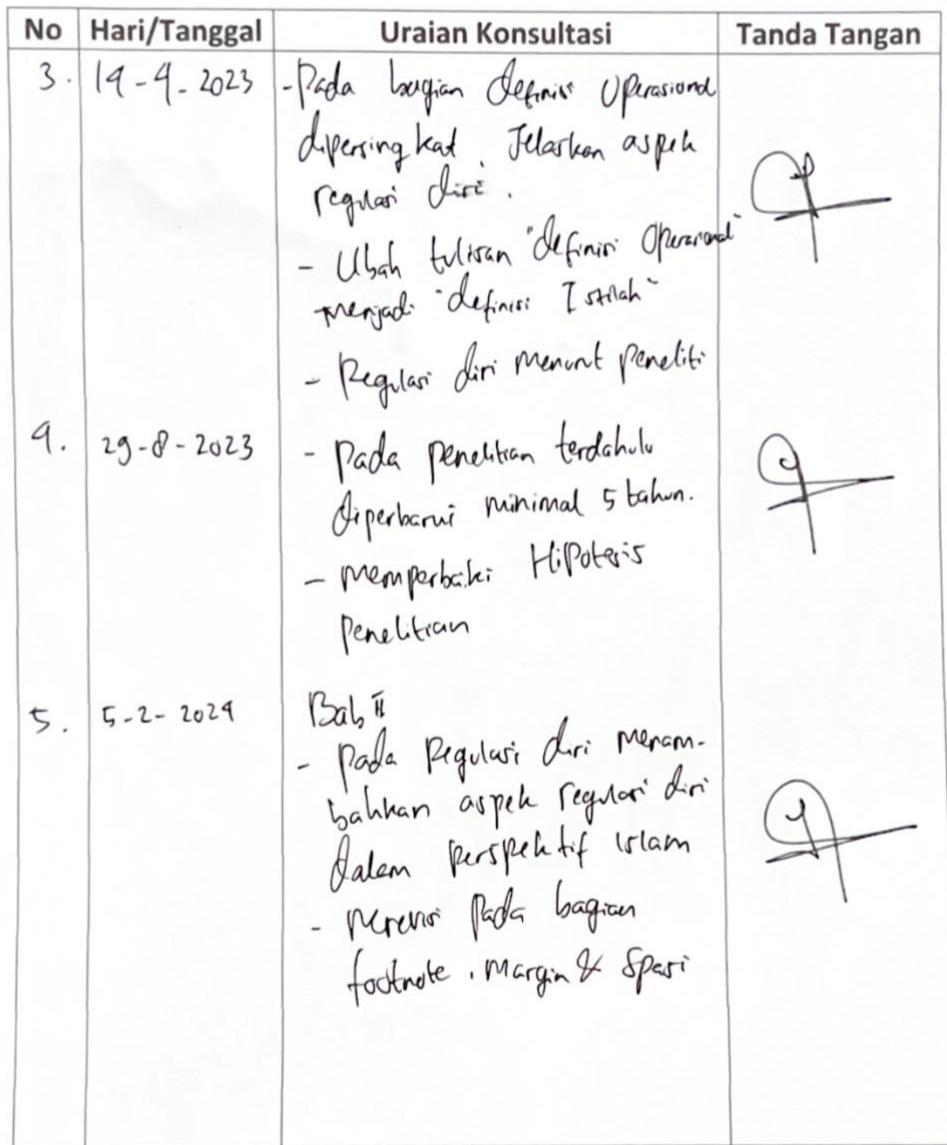 No Hari/Tanggal Uraian Konsultasi Tanda Tangan
3. 14-4-2023 - Pada bagian definisi Operasional
dipersingkat. Jelaskan aspek
regulasi diri.
- Ubah tulisan "definisi Operasional"
menjadi "definisi Istilah"
- Regulasi diri menurut peneliti
4. 29-8-2023 - Pada penelitian terdahulu
diperbarui minimal 5 tahun.
- memperbaiki Hipotesis
Penelitian
5. 5-2-2024 Bab II
- pada Regulasi diri menam-
bahkan aspek regulasi diri
dalam perspektif islam
- merevisi Pada bagian
footnote, margin & Spasi